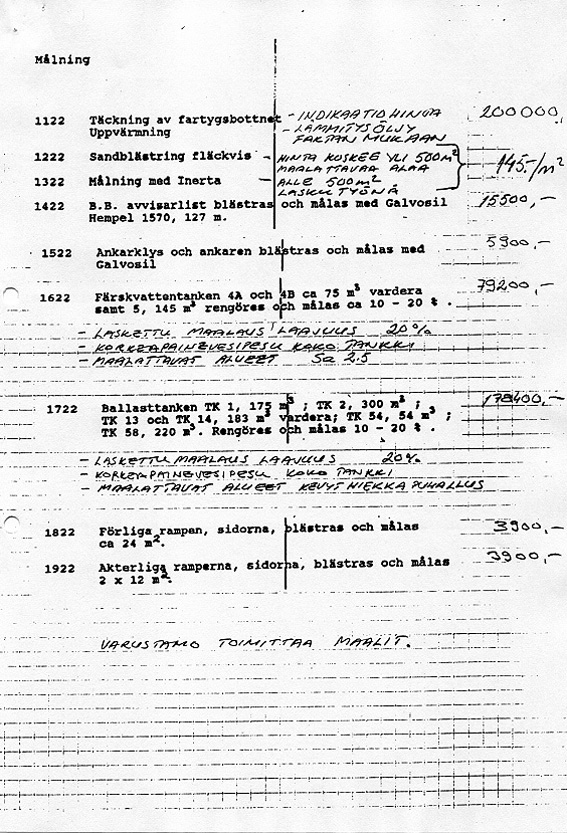 Målning
1122 Täckning av fartygsbottnet - INDIKAATIO HINTA 200000,
Uppvärmning - LÄMMITYSÖLJY
FAKTAN MUKAAN
1222 Sandblästring fläckvis - HINTA KOSKEE YLI 500 m²
MAALATTAVAA ALAA 145.-/m²
1322 Målning med Inerta - ALLE 500 m²
LASKUTYÖNÄ
1422 B.B. avvisarlist blästras och målas med Galvosil 15500,-
Hempel 1570, 127 m.
1522 Ankarklys och ankaren blästras och målas med 5900,-
Galvosil
1622 Färskvattentanken 4A och 4B ca 75 m³ vardera 79200,-
samt 5, 145 m³ rengöres och målas ca 10 - 20 % .
- LASKETTU MAALAUS LAAJUUS 20%
- KORKEAPAINEVESIPESU KOKO TANKKI
- MAALATTAVAT ALUEET Sa 2.5
1722 Ballasttanken TK 1, 175 m³ ; TK 2, 300 m³ ; 178400,-
TK 13 och TK 14, 183 m³ vardera; TK 54, 54 m³ ;
TK 58, 220 m³. Rengöres och målas 10 - 20 % .
- LASKETTU MAALAUS LAAJUUS 20%
- KORKEAPAINEVESIPESU KOKO TANKKI
- MAALATTAVAT ALUEET KEVYT HIEKKAPUHALLUS
1822 Förliga rampan, sidorna, blästras och målas 3900,-
ca 24 m².
1922 Akterliga ramperna, sidorna, blästras och målas 3900,-
2 x 12 m².
VARUSTAMO TOIMITTAA MAALIT.